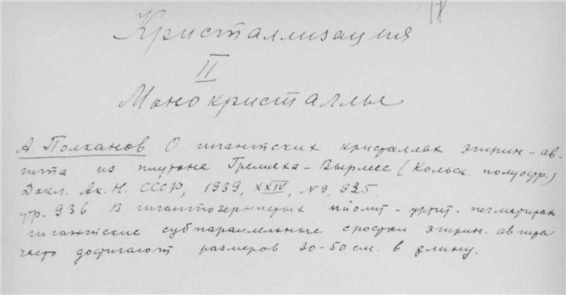 18
Кристаллизация
II
Монокристаллы
А. Полканов О гигантских кристаллах эгирин-ав-
гита из плутона Гремяха-Вырмес (Кольск. полуостр.)
Докл. Ак. Н. СССР, 1939, XXIV, №9, 935
стр. 936 В гигантозернистых ийолит-уртит. пегматитах
гигантские субпараллельные сростки эгирин. авгита
часто достигают размеров 30-50 см. в длину.